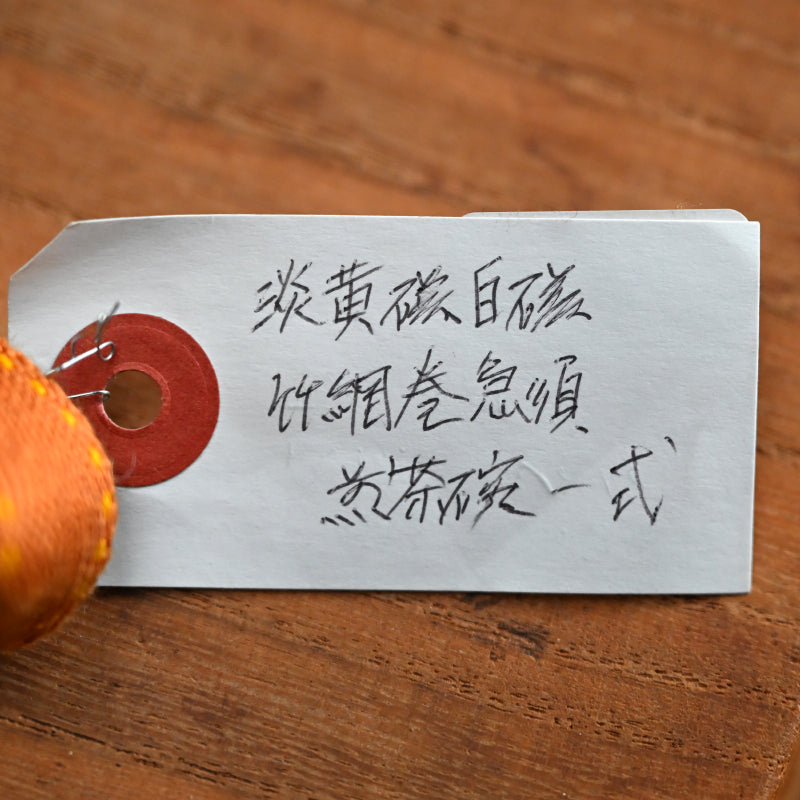 淡黄磁白磁
竹網巻急須
煎茶碗一式